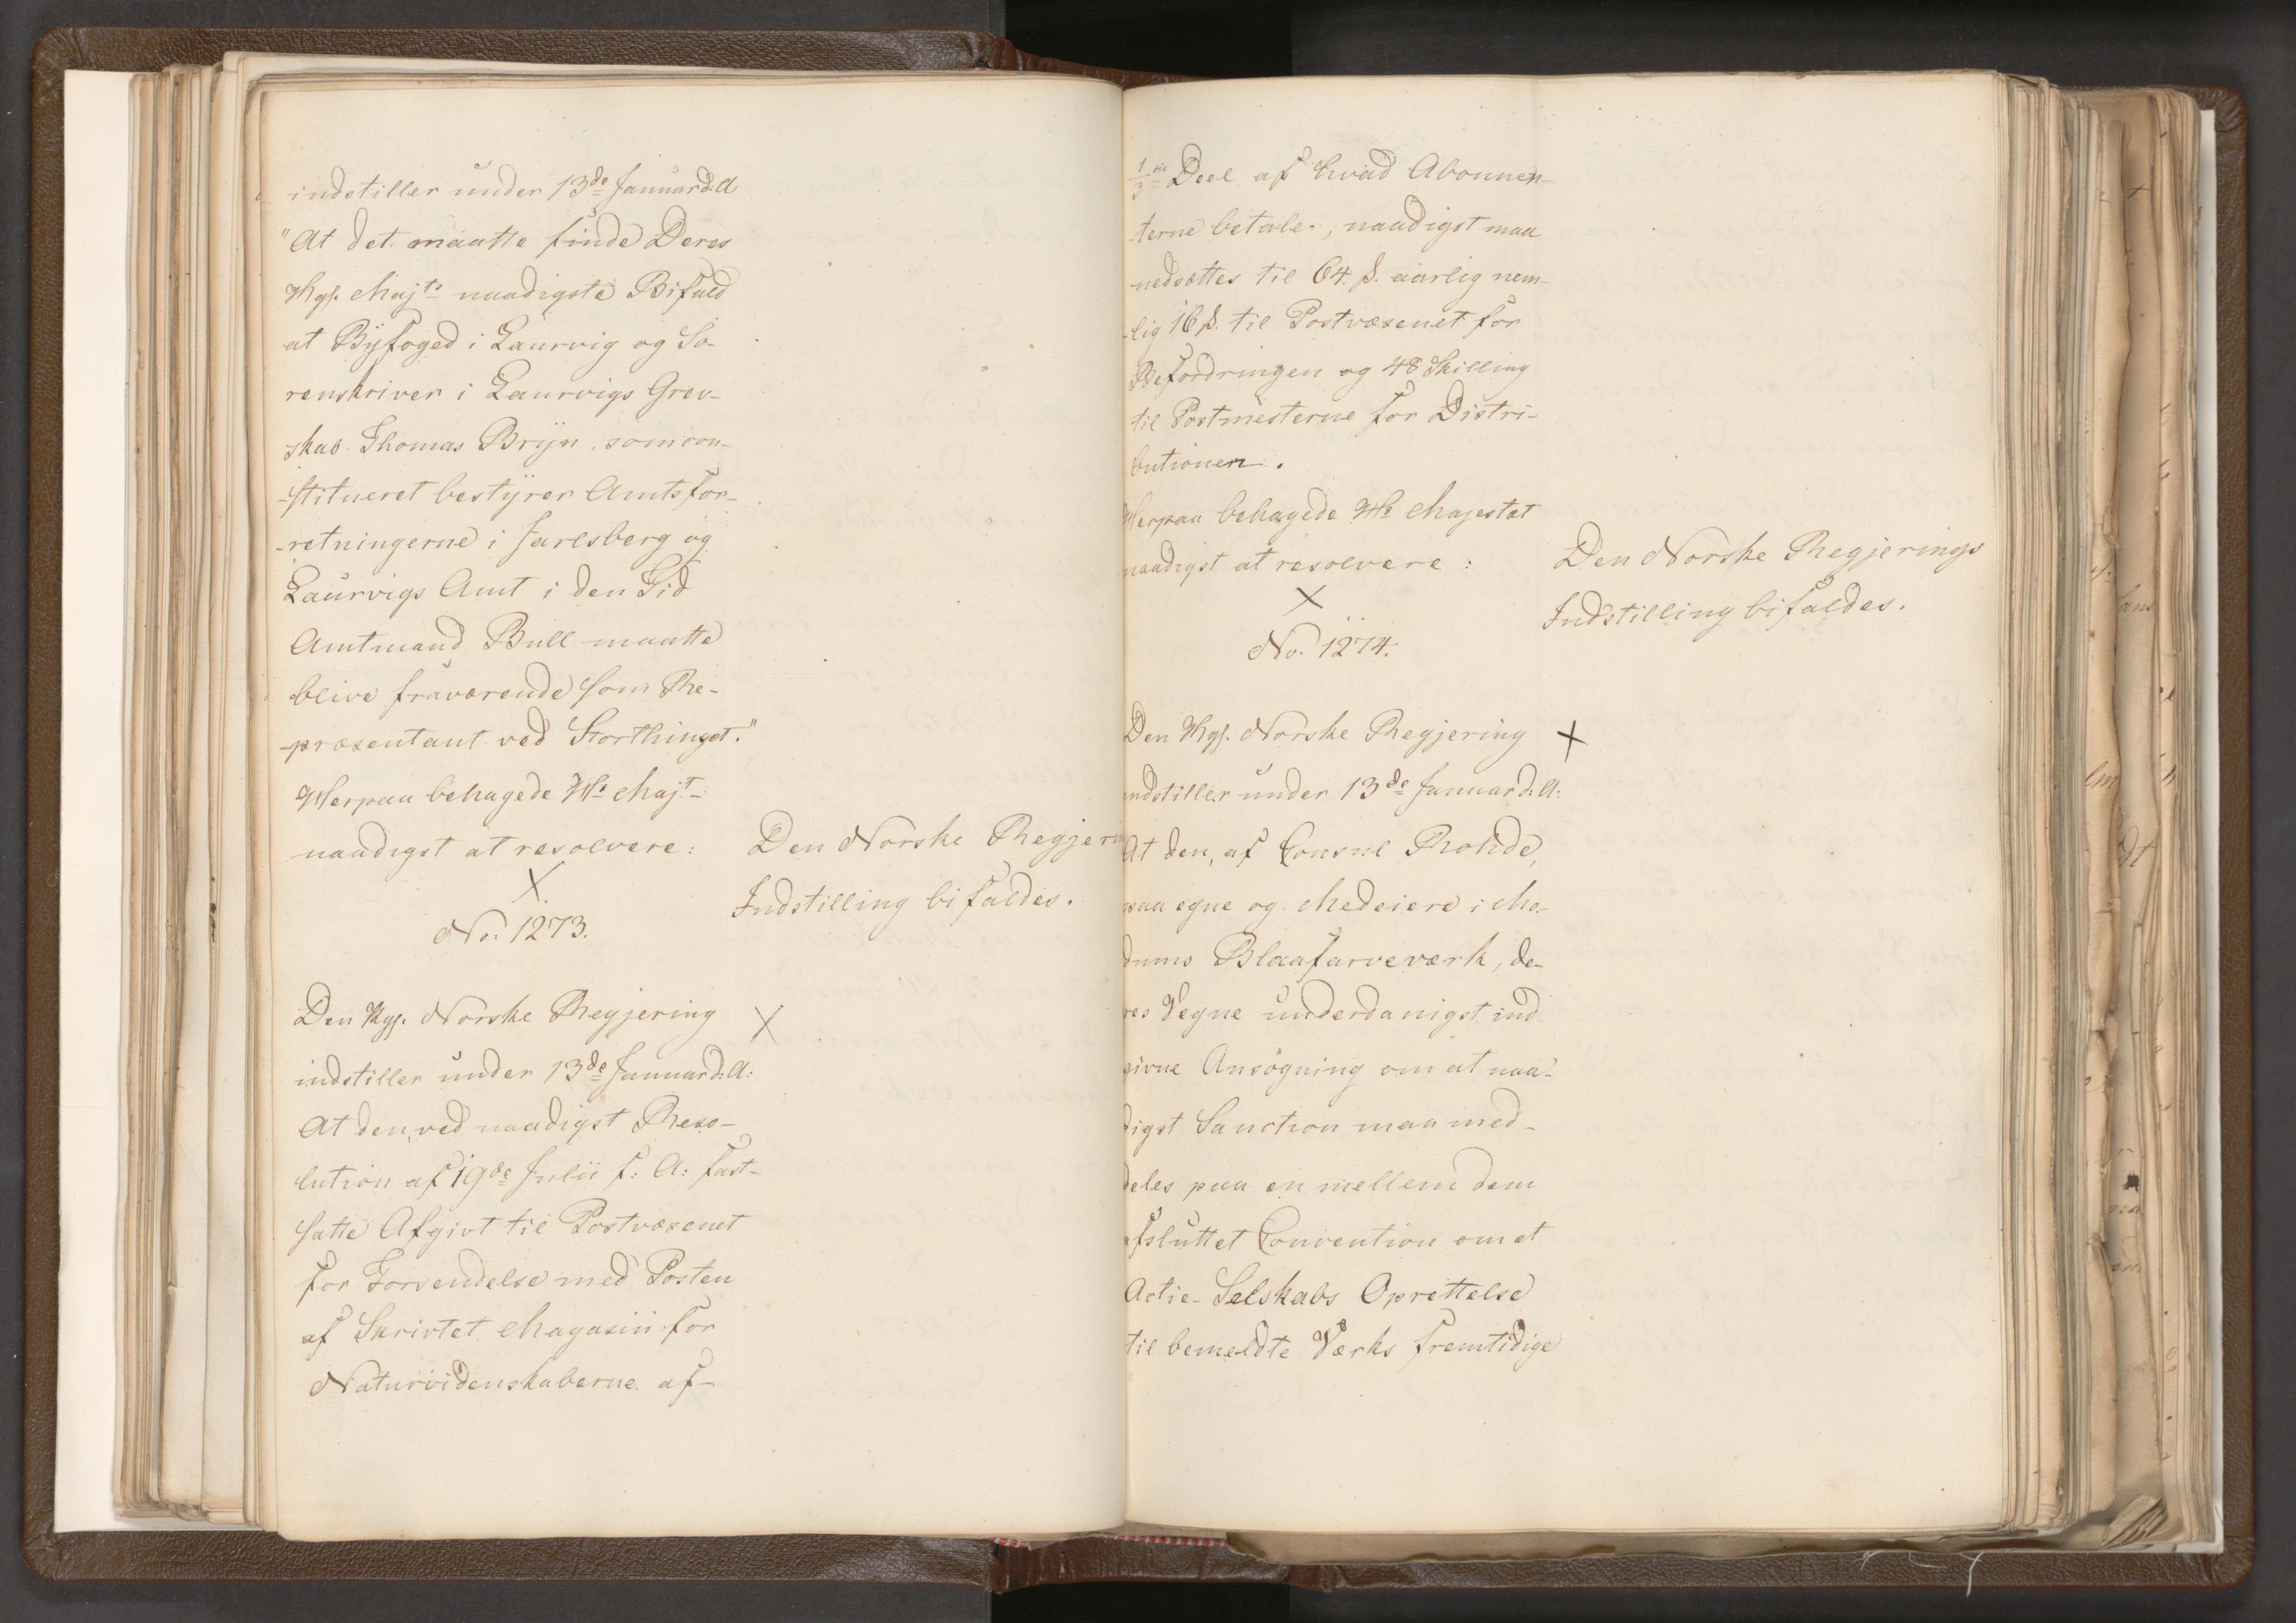 indstiller under 13de Januar d. A
"At det maatte finde Deres
Kgl. Majts naadigste Bifald
at Byfoged i Laurvig og So-
renskriver i Laurvigs Grev-
skab Thomas Bryn, som con-
-stitueret bestyrer Amtsfor-
-retningerne i Jarlsberg og
Laurvigs Amt i den Tid
Amtmand Bull maatte
blive fraværende som Re-
-præsentant ved Storthinget."
Herpaa behagede Hs Majt
naadigst at resolvere:
Den Norske Regjerin
Indstilling bifaldes.
X
No. 1273.
Den Kgl. Norske Regjering X
indstiller under 13de Januar d: A:
At den, ved naadigst Reso-
lution af 19de Julii f: A: fast-
satte Afgivt til Postvæsenet
for Forsendelse med Posten
af Skrivtet Magasin for
Naturvidenskaberne af-
1/3die Deel af hvad Abonnen-
-terne betale, naadigst maa
nedsættes til 64 ß. aarlig nem-
-lig 16 ß. til Postvæsenet for
Befordringen og 48 Skilling
til Postmesterne for Distri-
butionen.
Herpaa behagede Hs Majestæt
naadigst at resolvere:
Den Norske Regjerings
Indstilling bifaldes.
X
No. 1274.
Den Kgl. Norske Regjering X
indstiller under 13de Januar d: A:
At den, af Consul Rohde,
paa egne og Medeiere i Mo-
dums Blaafarveværk, de-
res Vegne underdanigst ind
givne Ansøgning om at naa-
digst Sanction maa med-
deles paa en mellem dem
afsluttet Convention om et
Actie-Selskabs Oprettelse
til bemeldte Værks fremtidige